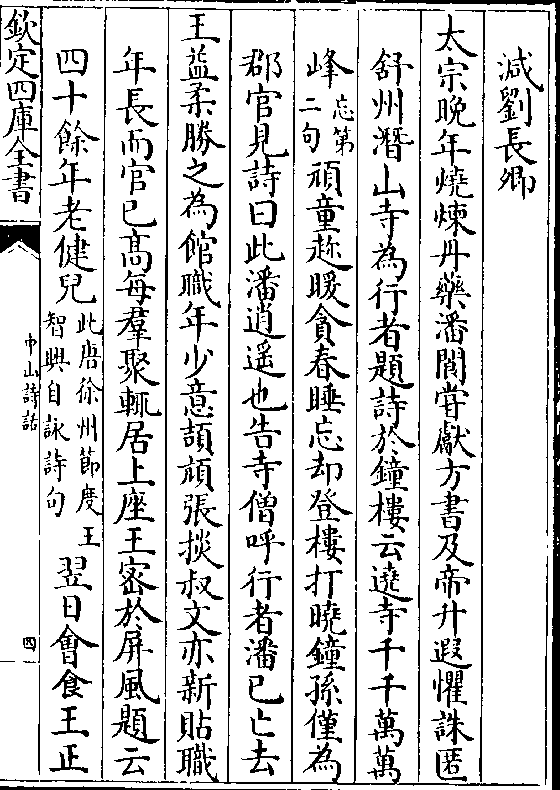 減劉長卿
太宗晚年燒煉丹藥潘閬嘗獻方書及帝升遐懼誅匿
舒州潛山寺為行者題詩於鐘樓云遶寺千千萬萬
峰忘第二句頑童趂暖貪春睡忘却登樓打曉鐘孫僅為
郡官見詩曰此潘逍遥也告寺僧呼行者潘已亡去
王益柔勝之為館職年少意頡頏張掞叔文亦新貼職
年長而官已髙每羣聚輒居上座王密於屏風題云
四十餘年老健兒此唐徐州節度王智興自詠詩句翌日會食王正
欽定四庫全書
中山詩話
四